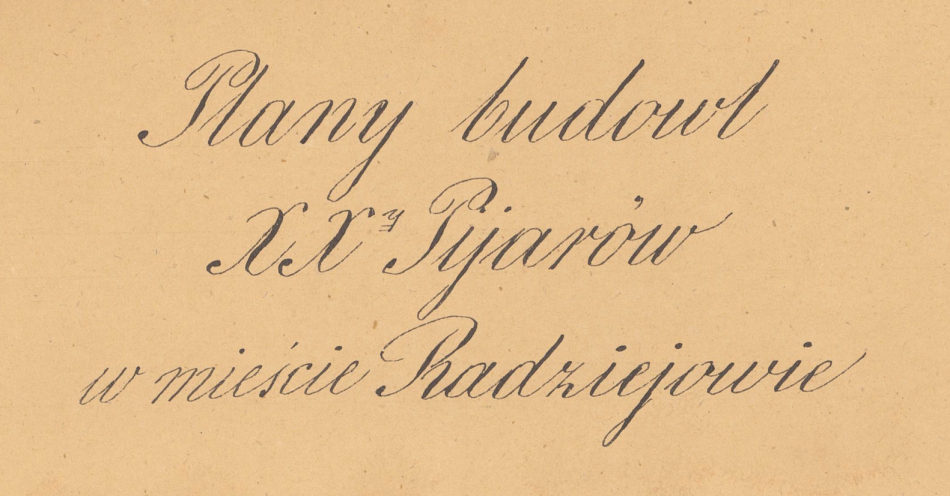 Plany budowl
XXzy Pijarów
w mieście Radziejowie